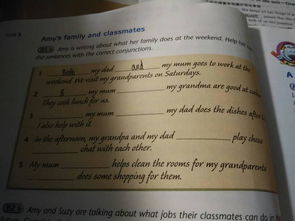 Amy's family and classmates
Amy is writing about what her family does at the weekend. Help her
the sentences with the correct conjunctions.
1 Both my dad and my mum goes to work at the
weekend. We visit my grandparents on Saturdays.
2 my mum my grandma are good at
They cook lunch for us.
3 my mum my dad does the dishes after
I also help with it.
4 In the afternoon, my grandpa and my dad play chess
chat with each other.
5 My mum helps clean the rooms for my grandparents
does some shopping for them.
Amy and Suzy are talking about what jobs their classmates can do in